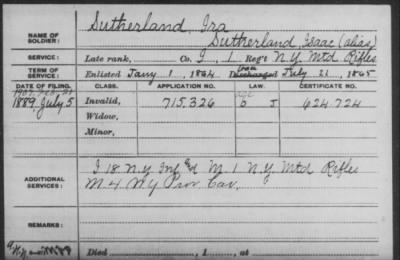 NAME OF SOLDIER: Sutherland, Ira
Sutherland, Isaac (alias)
SERVICE: Late rank, Co. I, 1 Reg't N.Y. Mtd Rifles
TERM OF SERVICE: Enlisted Jany 1, 1864 Discharged July 21, 1865
DATE OF FILING. CLASS. APPLICATION NO. LAW. CERTIFICATE NO.
1889 July 5 Invalid, 715.326 J 624.724
Widow,
Minor,
ADDITIONAL SERVICES: I 18 N.Y. Inf M. 1 N.Y. Mtd Rifles
M. 4 N.Y. Prov. Cav.
REMARKS:
Died , 1 , at